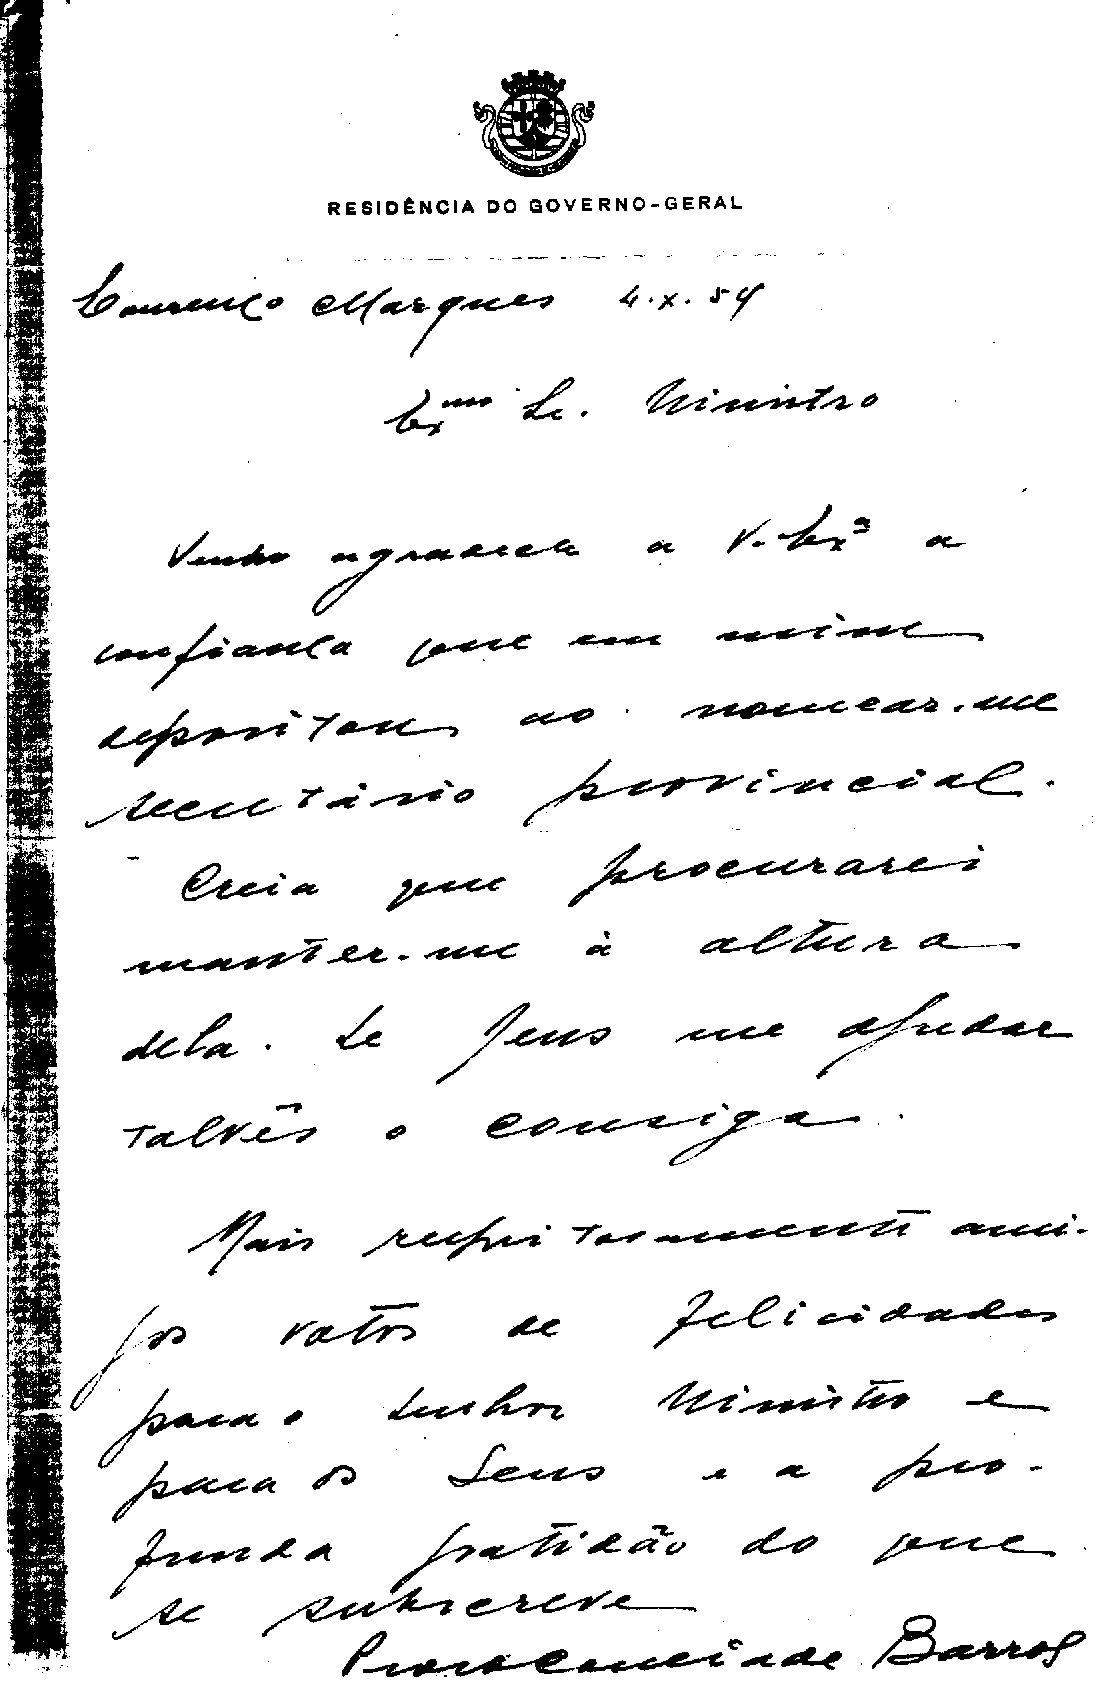 RESIDÊNCIA DO GOVERNO-GERAL
Lourenço Marques 4.X.54
Exmo Sr. Ministro
Venho agradecer a V. Exª a
confiança que em mim
depositou, ao nomear-me
secretário provincial.
Creia que procurarei
manter-me à altura
dela. Se Deus me ajudar
talvês o consiga.
Mais respeitosamente ami-
gos votos de felicidades
para o Senhor Ministro e
para os Seus e a pro-
funda gratidão do que
se subscreve
Barros